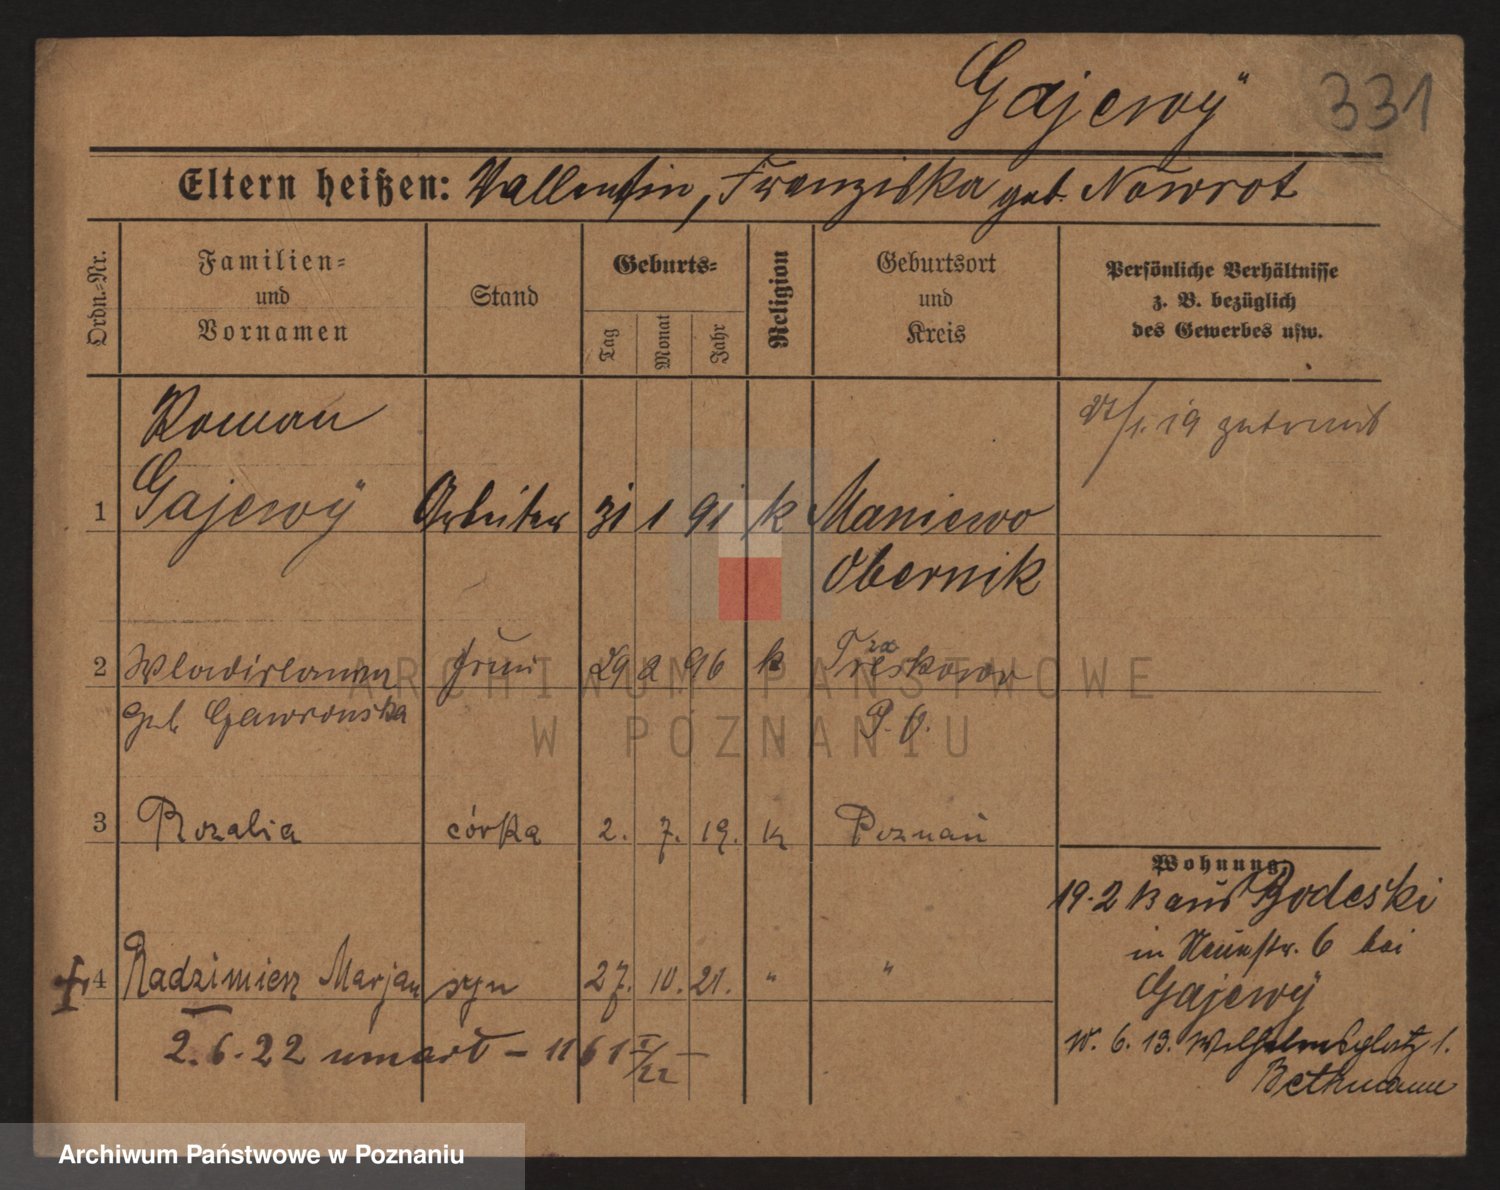 Gajewÿ 331
Eltern heißen: Vallentin, Franziska geb. Nowrot
Ordn.-Nr.
Familien-
und
Vornamen
Stand
Geburts-
Tag
Monat
Jahr
Religion
Geburtsort
und
Kreis
Persönliche Verhältnisse
z. B. bezüglich
des Gewerbes usw.
Roman
1 Gajewÿ Arbeiter 31 1 91 k Maniewo
Obernik
1.19 getraut
2 Wladislawa 29 2 96 k
geb Gawronska P. O.
3 Rozalia córka 2. 7. 19. k Poznań
4 Radzimierz Marjan syn 27. 10. 21. " "
2. 6. 22 umarł – 1161 I/22 –
Wohnung
19.2 13 aus Bodeski
in 6 bei
Gajewÿ
6. 13. Wilhelmsplatz 1.
Bethmann
ARCHIWUM PAŃSTWOWE
W POZNANIU
Archiwum Państwowe w Poznaniu